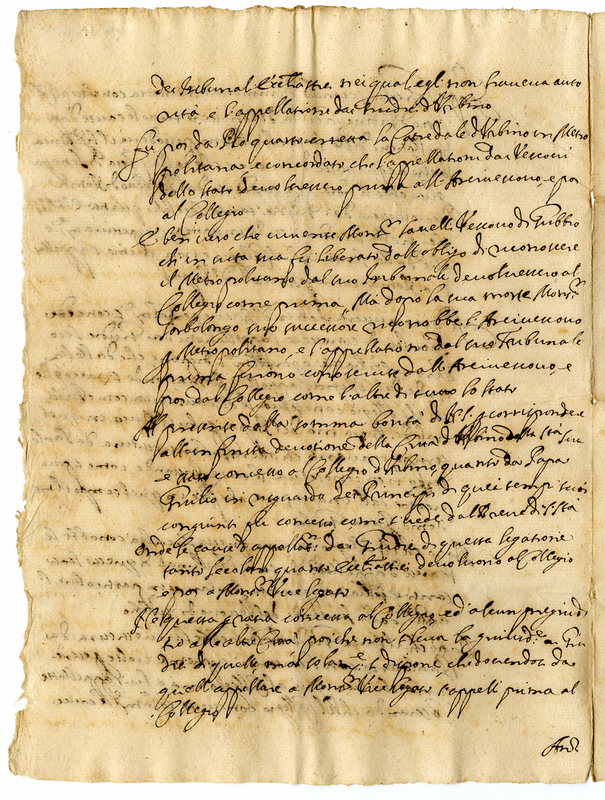 dei Tribunali Eccl.tici nei quali egli non haveva auto
rità e l'appellationi dai Giudici d'Urbino
Fu poi da Pio quarto eretta la Catedrale d'Urbino in Metro
politana e concordato, che l'appellationi dai Vescovi
dello stato devolvessero prima all'Arcivescovo, e poi
al Collegio
È ben vero che vivente Mons.r Savelli Vescovo di Gubbio
ch'in vita sua fu liberato dall'obligo di riconoscere
il Metropolitano dal suo Tribunale devolvessero al
Collegio come prima, Ma dopo la sua morte Mons.r
Sorbolongo suo successore riconobbe l'Arcivescovo
p Metropolitano, e l'appellationi dal suo Tribunale
prima furono conosciute dall'Arcivescovo, e
poi dal Collegio come l'altre di tutto lo stato
Al presente dalla somma bontà di N.S. p corrispondere
all'infinita devotione della Città d'Urbino dalla S.tà Sua
è stato concesso al Collegio d'Urbino quanto da Papa
Giulio in risguardo dei Principi di quei tempi suoi
congiunti fu concesso, come si vede dal Breve di S. S.tà
Onde le cause d'appellat.ni dai Giudici di questa legatione
tanto secolari quanto Eccl.tici devolvono al Collegio
e poi a Mons.r Vicelegato
Nè questa gratia concessa al Collegio, ed alcun pregiudi
tio alle altre Città, poiche non si leva la giurisd.ne ai Giu
dici di quelle ma solam.te si dispone, che dovendosi da
quelli appellare a Mons.r Vicelegato s'appelli prima al
Collegio